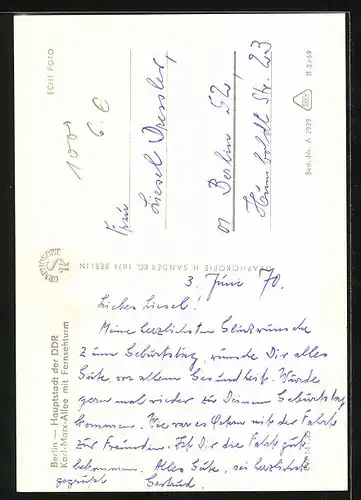 ECHT FOTO
1000
6.-
Frau
Liesel Dressler,
Berlin 52,
Humboldt Str. 23
Best.-Nr. A 2929 B 8/69
GRAPHOKOPIE
GRAPHOKOPIE H. SANDER KG, 1071 BERLIN
3. Juni 70.
Liebes Liesel!
Meine herzlichsten Glückwünsche
zum Geburtstag, wünsche Dir alles
Gute, vor allem Gesundheit. Würde
gern mal wieder zu Deinem Geburtstag
kommen. Wie war es Ostern mit der Fahrt
zur Freundin. Ist Dir die Fahrt gut
bekommen. Alles Gute, sei herzlichst
gegrüßt Gertrud.
Berlin — Hauptstadt der DDR
Karl-Marx-Allee mit Fernsehturm